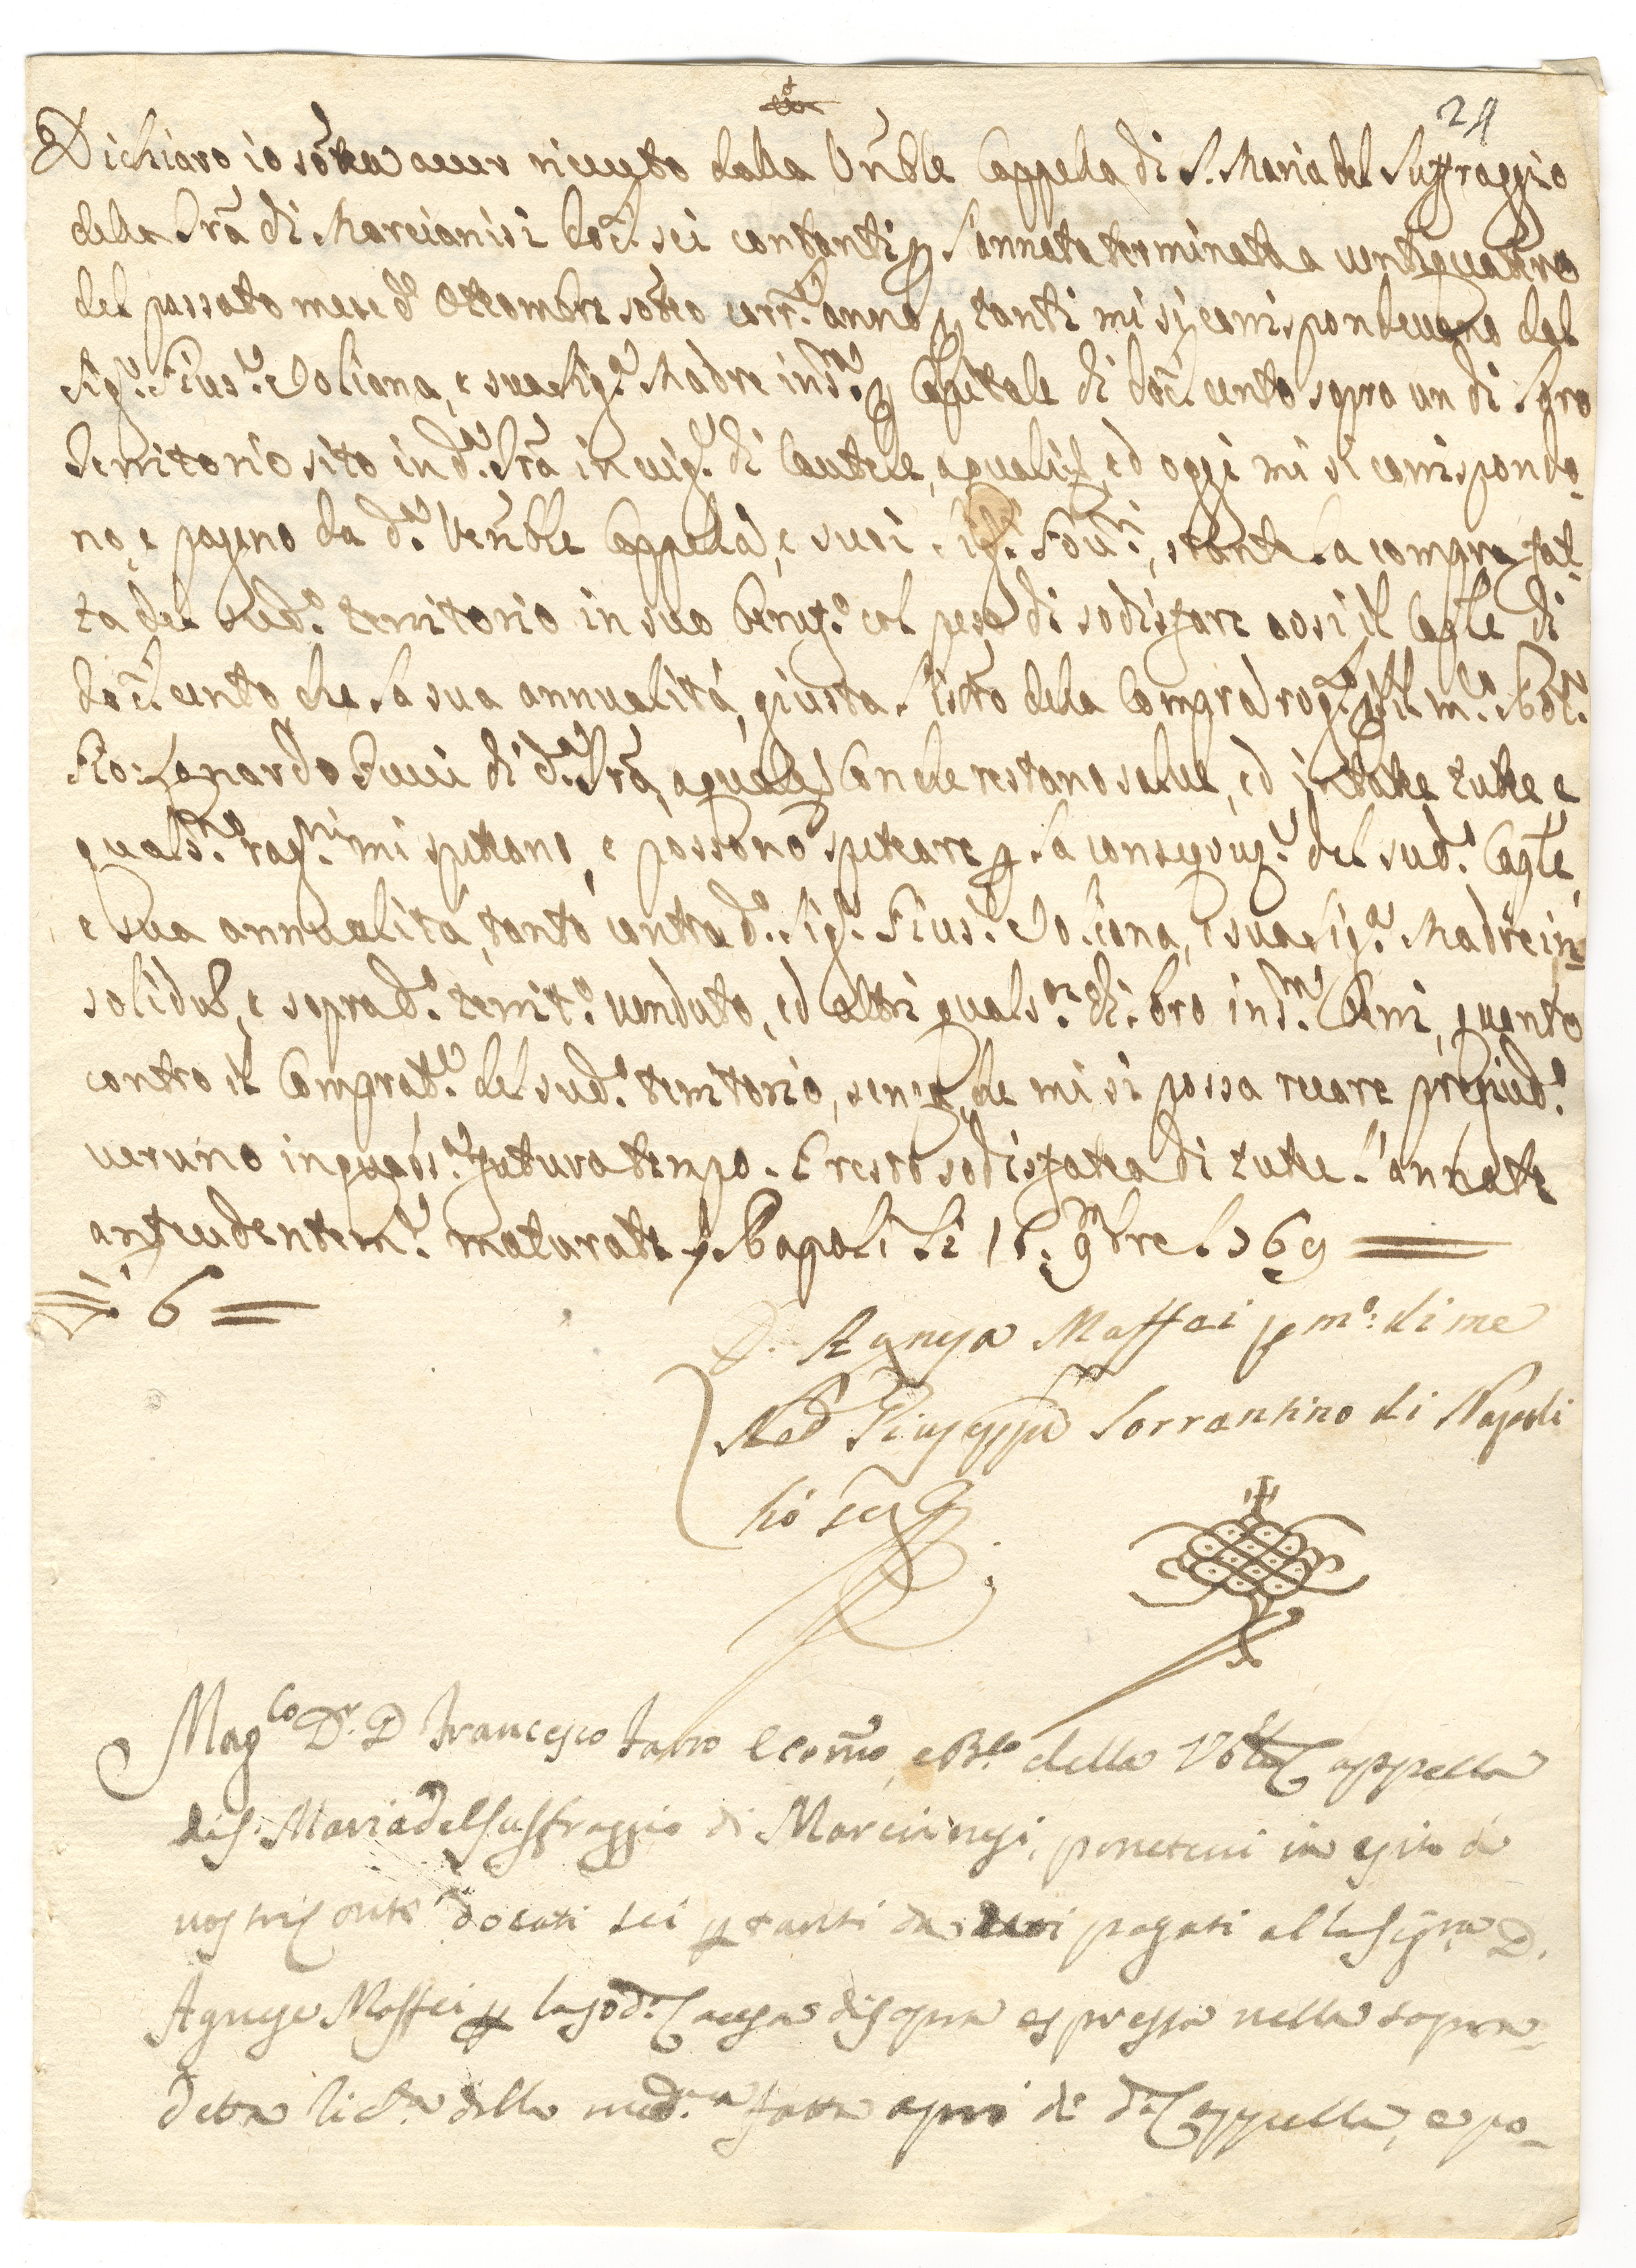 24
Dichiaro io sott̃a aver ricevuto dalla Vn̄ble Cappella di S. Maria del Suffraggio
della Trã di Marcianisi doc̃. sei contanti p l'annata terminata a ventiquattro
del passato mese d'Ottombre sotto corr.te anno, p tanti mi si corrispondevano dal
Sig.r Gius.e Doliana, e sua Sig.a Madre ins.m p Capitale di doc̃. cento sopra un di loro
Territorio sito in d.a Trã in vig.e di Cautele, a quali &, ed oggi mi si corrispondo-
no, e pagano da d.a Ven̄ble Cappella, e suoi Sig.i Gov.ri, stante la compra fat-
ta del sud.o territorio in suo benef.o col peso di sodisfare cosi il Cap̃le di
doc̃. cento che la sua annualità, giusta l'istro della Compra rog.to p il m.co Not.r
Gio: Lonardo Fucci di d.a Trã, a quale & Con che restano salve, ed intatte tutte e
quals.no rag.ni mi spettano, e possono spettare p la conseguz.e del sud.o Cap̃le,
e sua annualità, tanto contra d.o Sig.r Gius.e Doliana, e sua Sig.a Madre in
solidum, e sopra d.o territ.o venduto, ed altri quals.no di loro ins.m beni, quanto
contro il Comprat.e del sud.o territorio, senza che mi si possa recare pregiud.o
veruno in quals.a futuro tempo. E resto sodisfatta di tutte l'annate
antecedentem.e maturate & Napoli li 15: 9mbre 1769
6
D. Agnesa Maffei p m.o di me
Not.r Giuseppe Sorrentino di Napoli
hò seg
Mag.co D.r D Francesco Econ̄mo, e della V̄ble Cappella
di S. Maria del Suffraggio di Marcianesi, ponetevi in esito di
vostri Conti docati sei p tanti da voi pagati alla Sig.ra D.
Agnese Maffei p la sod.a Causa di sopra espressa nella sopra-
detta della med.ma fatta a prò di d.a Cappella, e po-